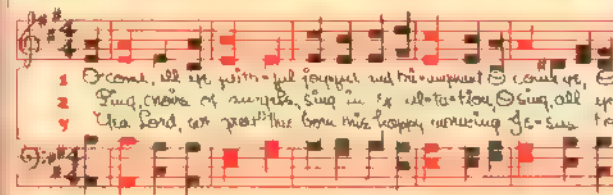 1 O come, all ye faith-ful joyful and tri-umphant O come ye, O
2 Sing, choirs of angels, Sing in ex-ul-ta-tion, O sing, all ye
Yea Lord, we greet thee born this happy morning Je-sus to